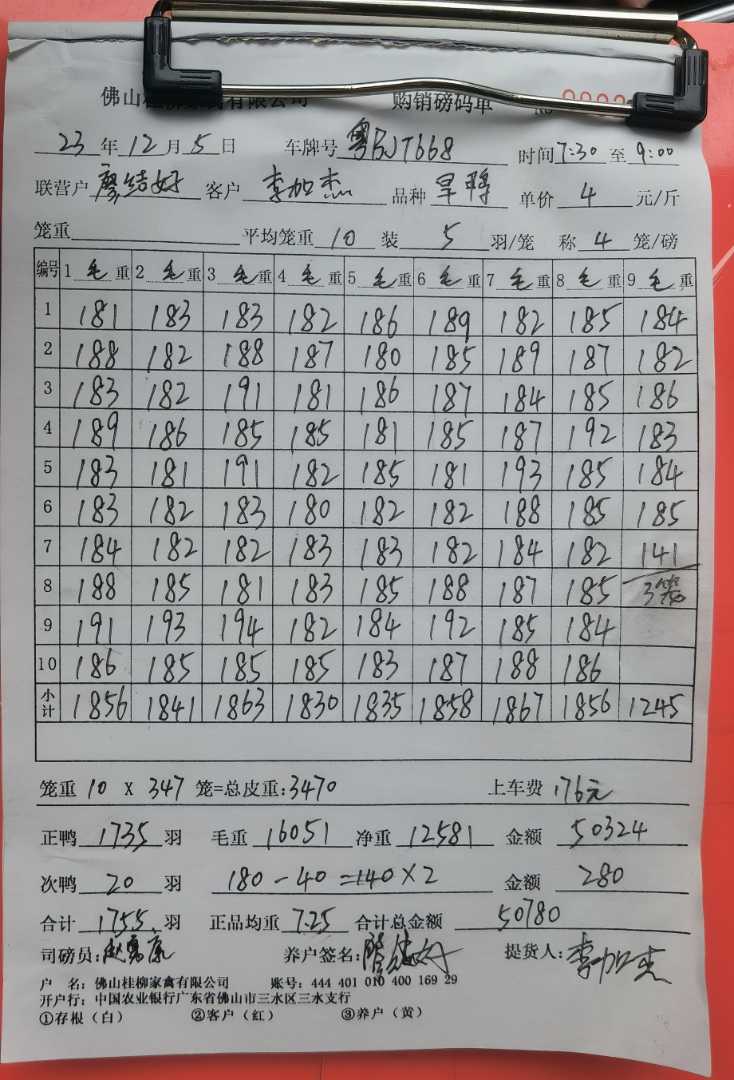 佛山桂柳家禽有限公司 购销磅码单
23 年 12 月 5 日 车牌号 粤BJT668 时间 7:30 至 9:00
联营户 廖结好 客户 李加杰 品种 单价 4 元/斤
笼重 平均笼重 10 装 5 羽/笼 称 4 笼/磅
编号 1 毛 重 2 毛 重 3 毛 重 4 毛 重 5 毛 重 6 毛 重 7 毛 重 8 毛 重 9 毛 重
1 181 183 183 182 186 189 182 185 184
2 188 182 188 187 180 185 189 187 182
3 183 182 191 181 186 187 184 185 186
4 189 186 185 185 181 185 187 192 183
5 183 181 191 182 185 181 193 185 184
6 183 182 183 180 182 182 188 185 185
7 184 182 182 183 183 182 184 182 141
8 188 185 181 183 185 188 187 185 3笼
9 191 193 194 182 184 192 185 184
10 186 185 185 185 183 187 188 186
小计 1856 1841 1863 1830 1835 1858 1867 1856 1245
笼重 10 X 347 笼=总皮重:3470 上车费 176元
正鸭 1735 羽 毛重 16051 净重 12581 金额 50324
次鸭 20 羽 180-40=140×2 金额 280
合计 1755 羽 正品均重 7.25 合计总金额 50780
司磅员: 养户签名: 提货人:李加杰
户 名: 佛山桂柳家禽有限公司 账号: 444 401 010 400 169 29
开户行: 中国农业银行广东省佛山市三水区三水支行
①存根(白) ②客户(红) ③养户(黄)